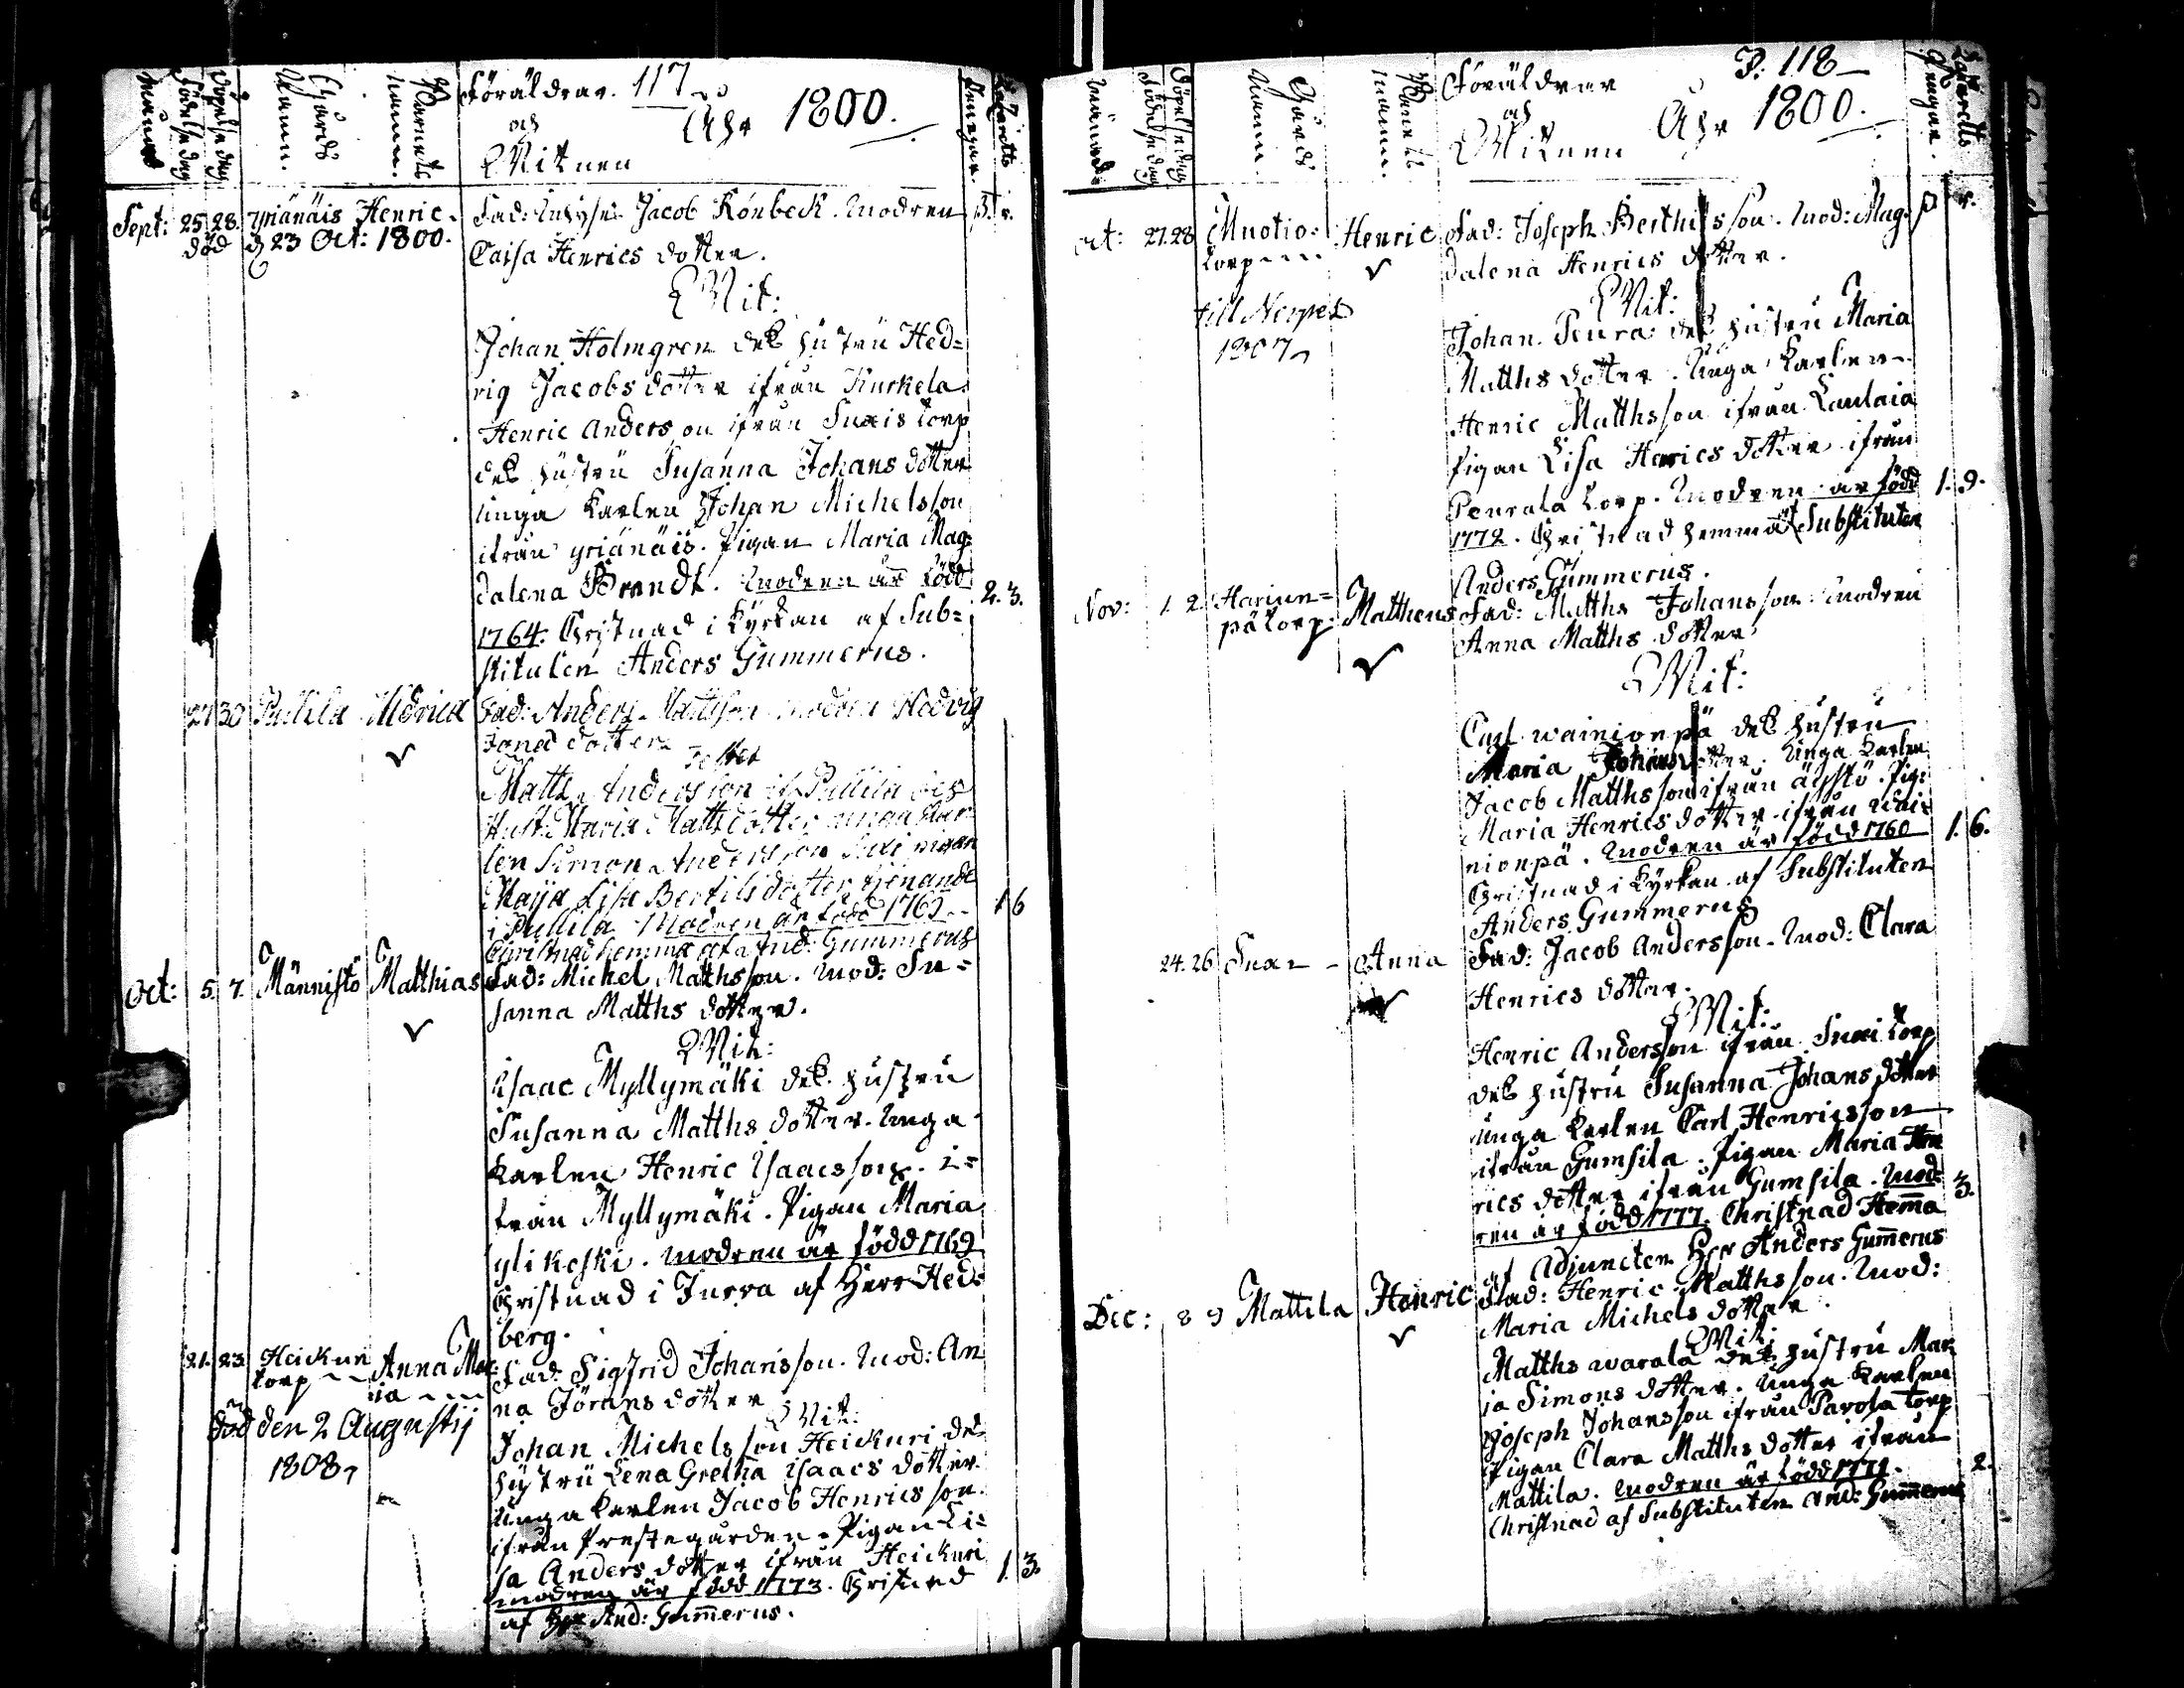 Månad
Födelsedag
Döpelse dag
Gårds Namn.
Barnets namn.
Föräldrar. 117
och
Witnen
Åhr 1800.
Sept: 25 28. yriänäis Henric
död d 23 Oct: 1800.
Fad: Jacob Rönbeck. Modren
Caisa Henrics dotter.
Wit:
Johan Holmgren des hustru Hed=
vig Jacobs dotter ifrån Kurkela.
Henric Andersson ifrån Suxis torp
des hustru Susanna Johans dotter
unga Karlen Johan Michelsson
ifrån yriänäis. Pigan Maria Mag=
dalena Brandt. Modren är född 2. 3.
1764. Christnad i Kyrkan af Sub=
stituten Anders Gummerus.
27 30 Pullila Ulrica
Fad: Anders Mattsson modren Hedvig
dotter
Matts Andersson if: Pullila des
Hust: Maria Mattsdotter unga Kar=
len Simon Andersson pigan
Maija Lisa Bertilsdotter tjenande
i Pullila. Modren är född 1762 1 6
Christnad hemma af And: Gummerus
Oct: 5. 7. Männistö Matthias
Fad: Michel Mathsson. Mod: Su=
sanna Matths dotter.
Wit:
Isaac Myllymäki des hustru
Susanna Matths dotter. Unga
Karlen Henric Isaacsson i=
från Myllymäki. Pigan Maria
ylikoski. Modren är född 1769
Christnad i Jurva af Herr Hed=
berg.
21. 23. Heickuri torp Anna Maria
död den 2 Augustij
1808
Fad: Sigfrid Johansson. Mod: An
na Jörans dotter
Wit:
Johan Michelsson Heickuri des
hustru Lena Gretha Isaacs dotter.
Unga Karlen Jacob Henricsson
ifrån Prestegården. Pigan Li=
sa Anders dotter ifrån Heickuri 1. 3.
modren är född 1773. Christnad
af Herr And: Gummerus.
Månad
Födelsedag
Döpelsedag
Gårds Namn
Barnets namn.
Föräldrar
och
Witnen
P: 118
Åhr 1800.
Oct: 27. 28 Muotio= torp Henric
till Nerpes
1807
Fad: Joseph Berthilsson. Mod: Mag=
dalena Henrics dotter.
Wit:
Johan Peura des hustru Maria
Matths dotter. Unga Karlen
Henric Matthsson ifrån Laulaia
Pigan Lisa Henrics dotter ifrån
Peurala torp. Modren är född 1. 9.
1772. Christnad hemma Substituten
Anders Gummerus.
Nov: 1. 2. Hariun= pä torp. Mattheus
Fad: Matths Johansson modren
Anna Matths dotter
Wit:
Carl wainionpä des hustru
Maria Johans dotter. Unga Karlen
Jacob Matthsson ifrån äystö. Pig:
Maria Henrics dotter ifrån wai=
nionpä. Modren är född 1760 1. 6.
Christnad i Kyrkan af Substituten
Anders Gummerus
24. 26 Suxi Anna
Fad: Jacob Andersson. Mod: Clara
Henrics dotter.
Wit:
Henric Andersson ifrån Suxi torp
des hustru Susanna Johans dotter
unga Karlen Carl Henricsson
ifrån Gumsila. Pigan Maria Hen
rics dotter ifrån Gumsila. Mod= 3.
ren är född 1777. Christnad Hemma
af Adjuncten Herr Anders Gummerus
Dec: 8 9 Mattila Henric
Fad: Henric Matthsson. Mod:
Maria Michels dotter.
Wit:
Matths warala des hustru Mar
ia Simons dotter. Unga Karlen
Joseph Johansson ifrån Parola torp
Pigan Clara Matths dotter ifrån
Mattila. Modren är född 1771. 2.
Christnad af Substituten And: Gummerus